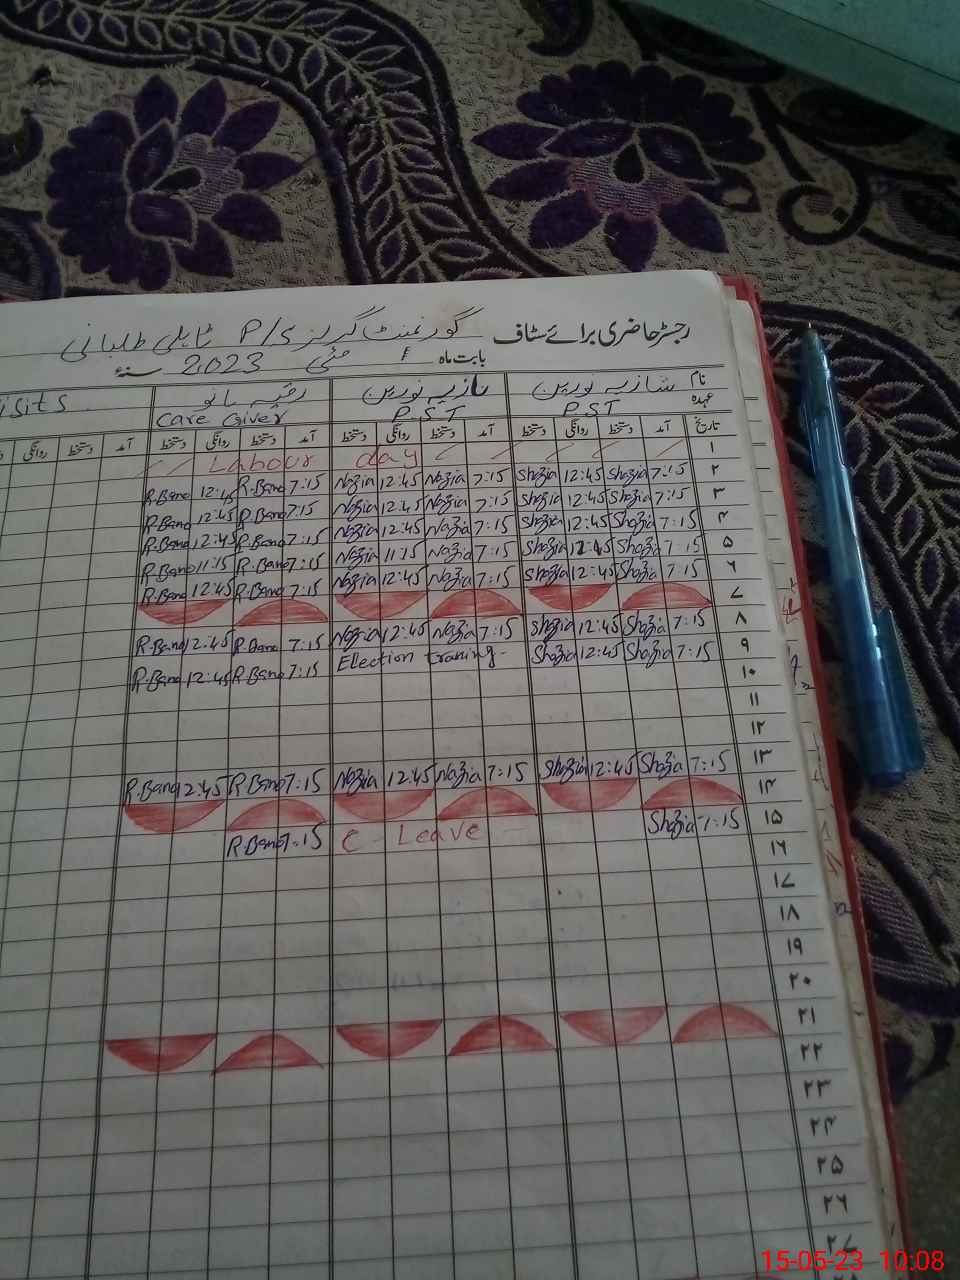 رجسٹر حاضری برائے سٹاف گورنمنٹ گرلز P/S ٹاہلی طلبانی
بابت ماہ مئی 2023 سنہء
نام شازیہ نورین نازیہ نورین رقیہ بانو
عہدہ PST PST Care Giver isits
تاریخ آمد دستخط روانگی دستخط آمد دستخط روانگی دستخط آمد دستخط روانگی دستخط آمد دستخط روانگی
۱ Labour day
۲ 7:15 Shazia 12:45 Shazia 7:15 Nazia 12:45 Nazia 7:15 R.Bano 12:45 R.Bano
۳ 7:15 Shazia 12:45 Shazia 7:15 Nazia 12:45 Nazia 7:15 R.Bano 12:45 R.Bano
۴ 7:15 Shazia 12:45 Shazia 7:15 Nazia 12:45 Nazia 7:15 R.Bano 12:45 R.Bano
۵ 7:15 Shazia 12:45 Shazia 7:15 Nazia 11:15 Nazia 7:15 R.Bano 11:15 R.Bano
۶ 7:15 Shazia 12:45 Shazia 7:15 Nazia 12:45 Nazia 7:15 R.Bano 12:45 R.Bano
۷
۸ 7:15 Shazia 12:45 Shazia 7:15 Nazia 12:45 Nazia 7:15 R.Bano 12:45 R.Bano
۹ 7:15 Shazia 12:45 Shazia Election traning- 7:15 R.Bano 12:45 R.Bano
۱۰
۱۱
۱۲
۱۳ 7:15 Shazia 12:45 Shazia 7:15 Nazia 12:45 Nazia 7:15 R.Bano 12:45 R.Bano
۱۴
۱۵ 7:15 Shazia C - Leave 7:15 R.Bano
۱۶
۱۷
۱۸
۱۹
۲۰
۲۱
۲۲
۲۳
۲۴
۲۵
۲۶
۲۷
15-05-23 10:08